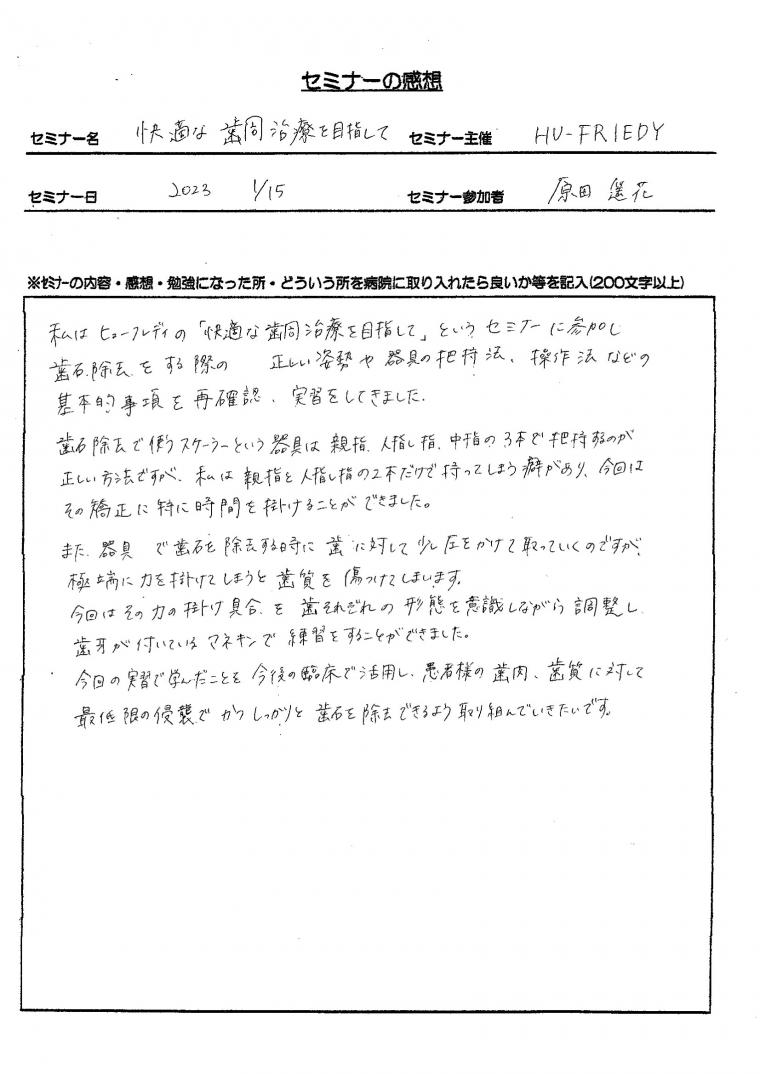 セミナーの感想
セミナー名 快適な歯周治療を目指して セミナー主催 HU-FRIEDY
セミナー日 2023 1/15 セミナー参加者 原田 遥花
※ｾﾐﾅｰの内容・感想・勉強になった所・どういう所を病院に取り入れたら良いか等を記入(200文字以上)
私はヒューフレディの「快適な歯周治療を目指して」というセミナーに参加し
歯石除去をする際の 正しい姿勢や器具の把持法、操作法などの
基本的事項を再確認、実習をしてきました。
歯石除去で使うスケーラーという器具は親指、人指し指、中指の3本で把持するのが
正しい方法ですが、私は親指と人指し指の2本だけで持ってしまう癖があり、今回は
その矯正に特に時間を掛けることができました。
また、器具 で歯石を除去する時に歯に対して少し圧をかけて取っていくのですが、
極端に力を掛けてしまうと歯質を傷つけてしまいます。
今回はその力の掛け具合を歯それぞれの形態を意識しながら調整し、
歯牙が付いているマネキンで練習をすることができました。
今回の実習で学んだことを今後の臨床で活用し、患者様の歯肉、歯質に対して
最低限の侵襲でかつしっかりと歯石を除去できるよう取り組んでいきたいです。